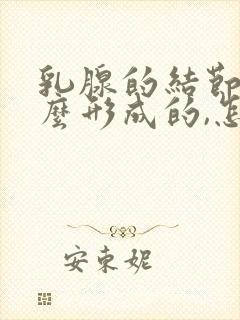 乳腺的結節
麼形成的,怎
安東妮